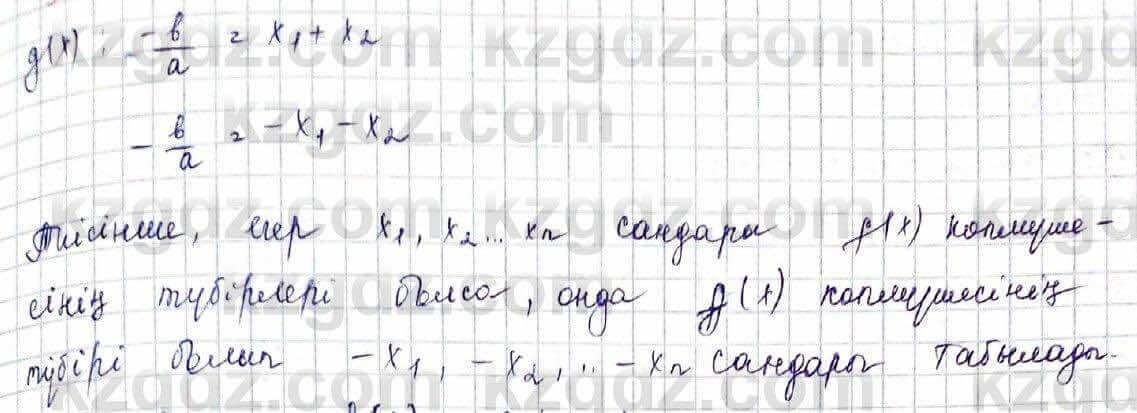 g(x): -b/a = x₁ + x₂
-b/a = -x₁ - x₂
Тиісінше, егер x₁, x₂... xn сандары f(x) көпмүше-
сінің түбірлері болса, онда g(x) көпмүшесінің
түбірі болып -x₁, -x₂, .. -xn сандары табылады.
kzgdz.com